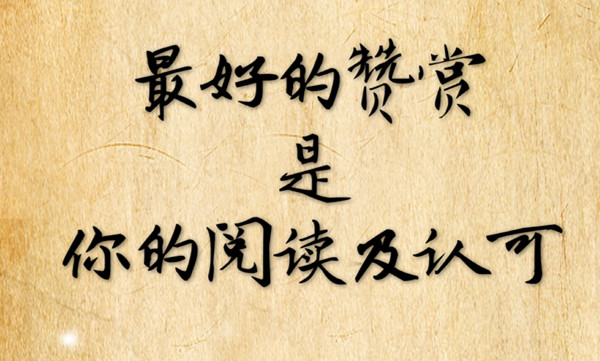 最好的赞赏
是
你的阅读及认可